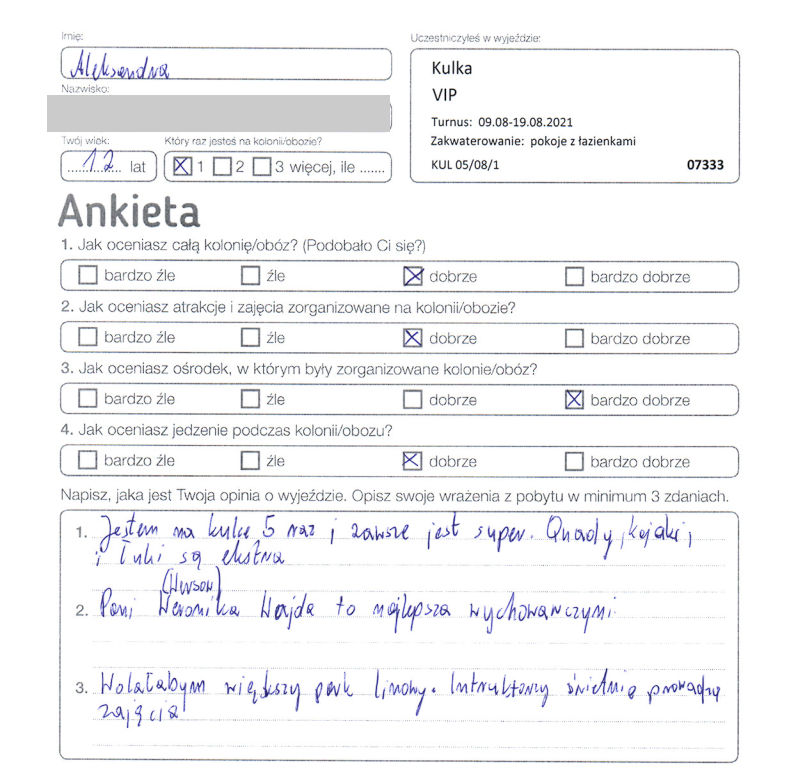 Imię:
Aleksandra
Nazwisko:
Twój wiek:
12 lat
Który raz jesteś na kolonii/obozie?
1 2 3 więcej, ile .......
Uczestniczyłeś w wyjeździe:
Kulka
VIP
Turnus: 09.08-19.08.2021
Zakwaterowanie: pokoje z łazienkami
KUL 05/08/1 07333
Ankieta
1. Jak oceniasz całą kolonię/obóz? (Podobało Ci się?)
bardzo źle źle dobrze bardzo dobrze
2. Jak oceniasz atrakcje i zajęcia zorganizowane na kolonii/obozie?
bardzo źle źle dobrze bardzo dobrze
3. Jak oceniasz ośrodek, w którym były zorganizowane kolonie/obóz?
bardzo źle źle dobrze bardzo dobrze
4. Jak oceniasz jedzenie podczas kolonii/obozu?
bardzo źle źle dobrze bardzo dobrze
Napisz, jaka jest Twoja opinia o wyjeździe. Opisz swoje wrażenia z pobytu w minimum 3 zdaniach.
1. Jestem na kulce 5 raz i zawsze jest super. Quady, kajaki,
i łuki są ekstra
2. Pani Weronika Wajda to najlepsza wychowawczyni.
3. Wolałabym większy park linowy. Intruktorzy świetnie prowadzą
zajęcia